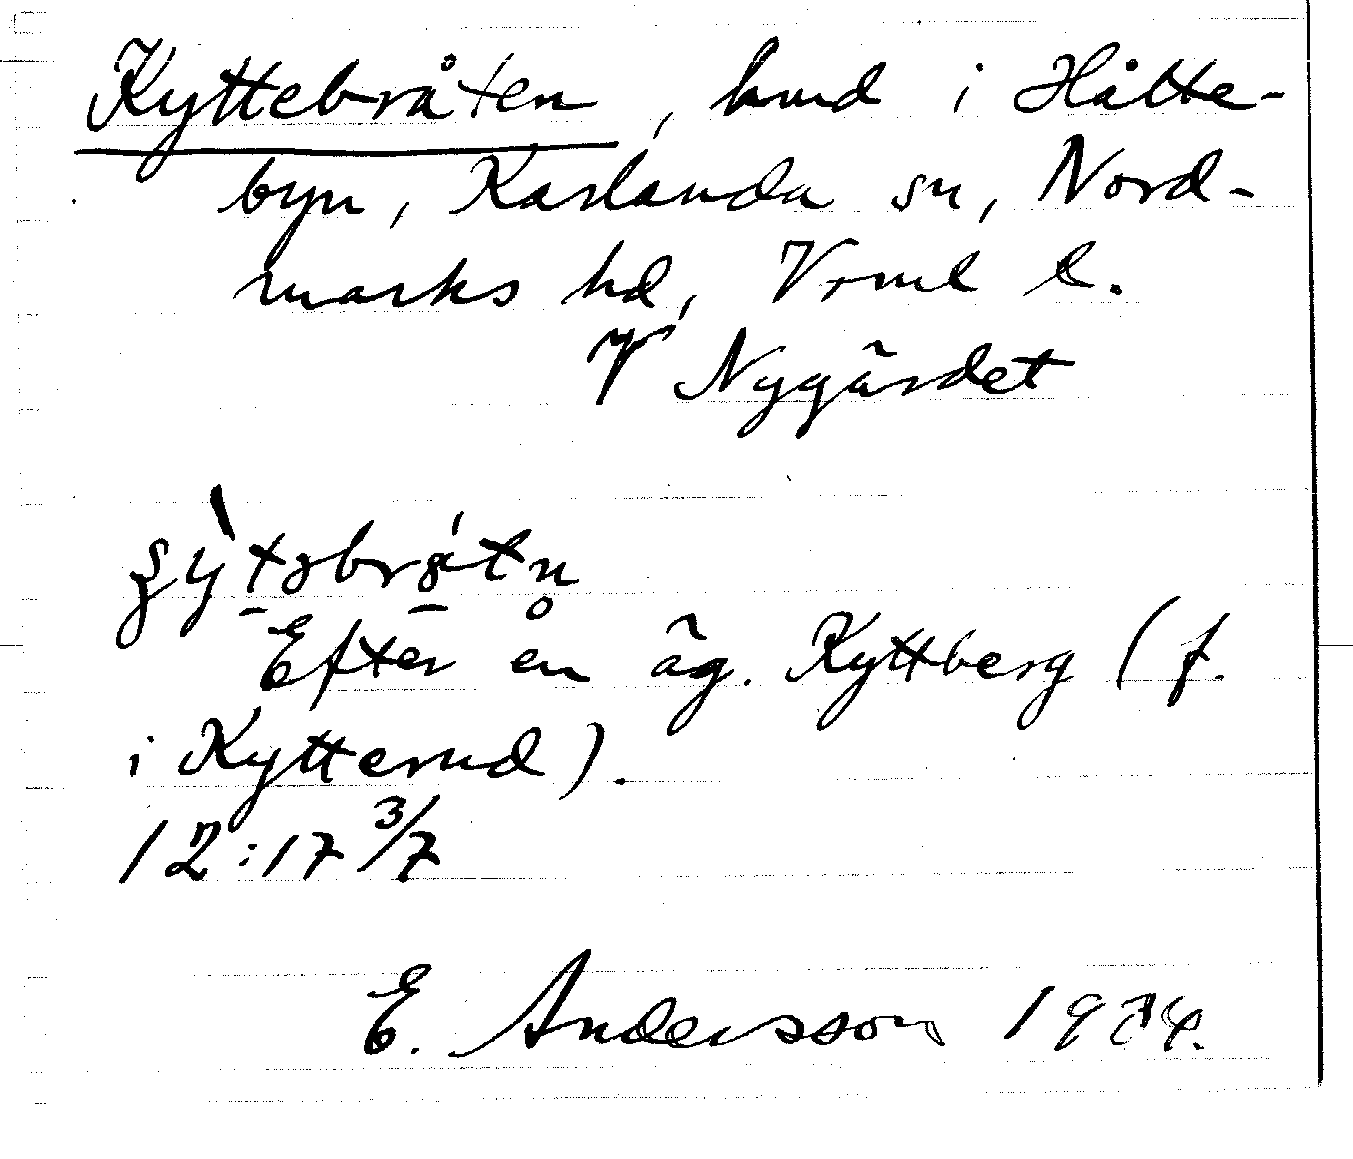 Kyttebråten, hmd i Hålte-
byn, Karlanda sn, Nord-
marks hd, Vrml l.
V Nygärdet
Efter en äg. Kyttberg (f.
i Kytterud).
12:17 3/7
E. Andersson 1934.